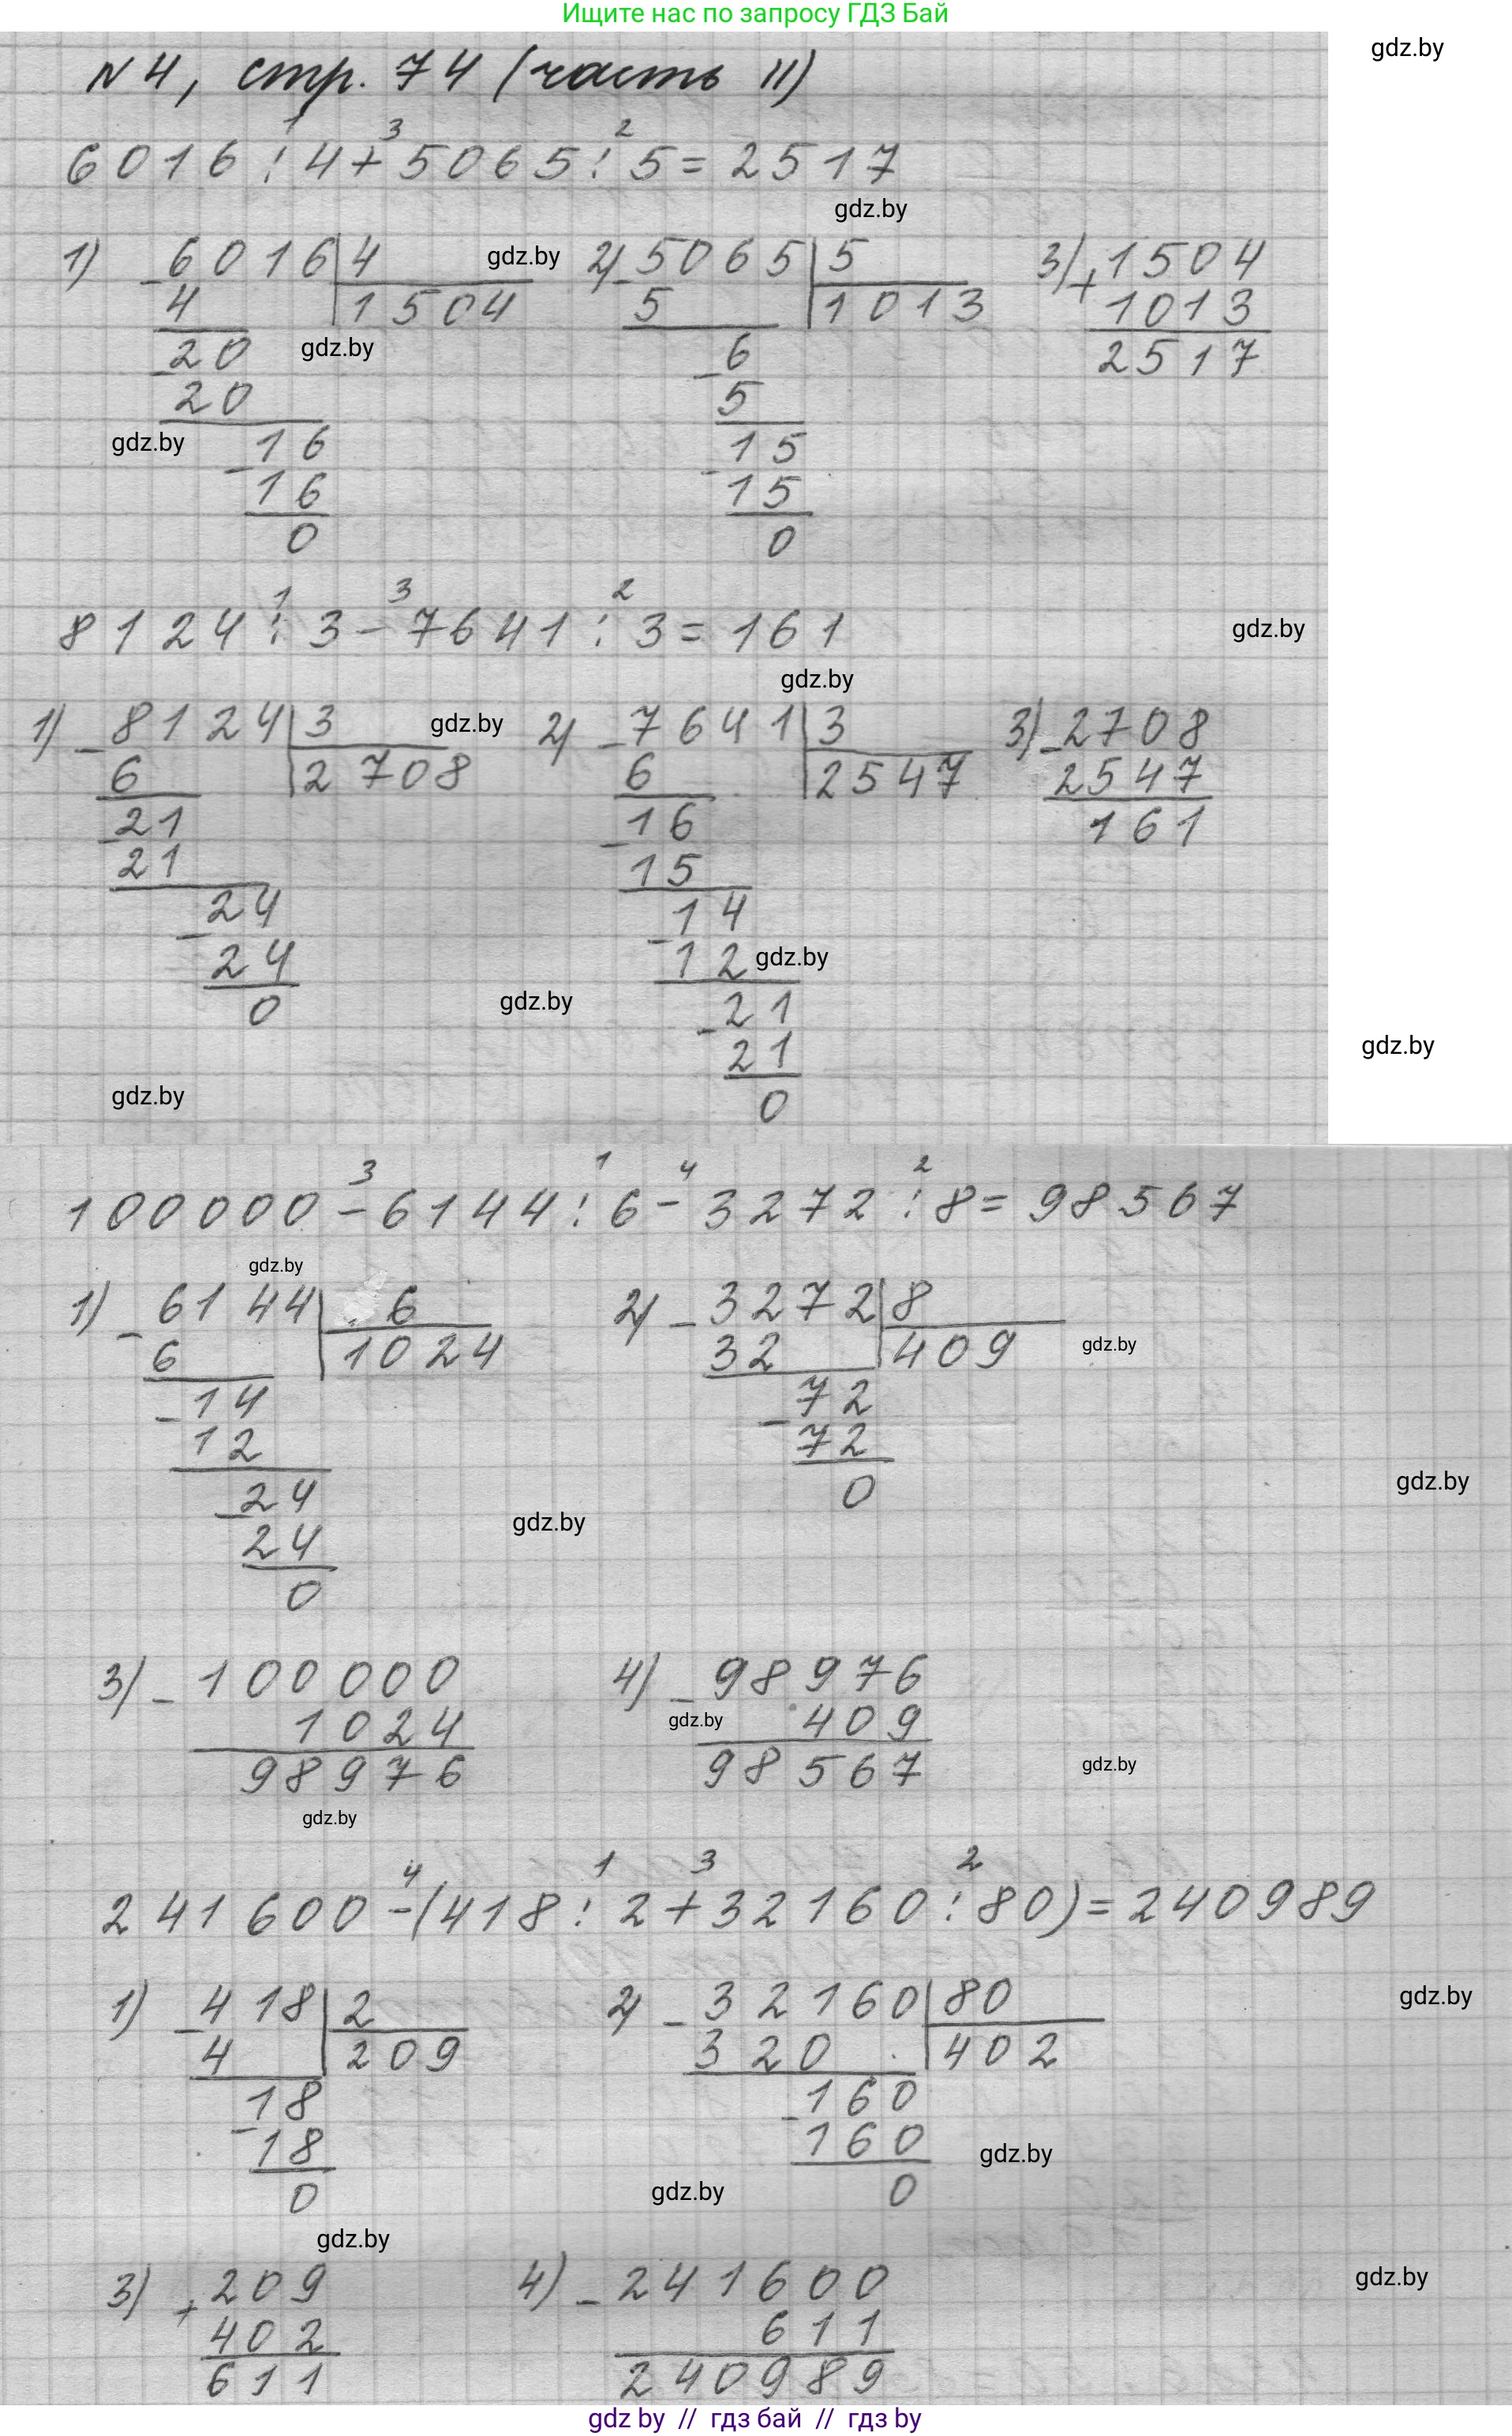 Ищите нас по запросу ГДЗ Бай
gdz.by
№4, стр. 74 (часть II)
1 3 2
6016:4+5065:5=2517
gdz.by
1) -6016|4 gdz.by 2) -5065|5 3) +1504
4 |1504 5 |1013 1013
-20 gdz.by -6 2517
20 5
gdz.by -16 -15
16 15
0 0
1 3 2
8124:3-7641:3=161 gdz.by
gdz.by
1) -8124|3 gdz.by 2) -7641|3 3) -2708
6 |2708 6 |2547 2547
-21 -16 161
21 15
-24 -14
24 12 gdz.by
0 gdz.by -21
21 gdz.by
gdz.by 0
3 1 4 2
100000-6144:6-3272:8=98567
gdz.by
1) -6144|6 2) -3272|8
6 |1024 32 |409 gdz.by
-14 -72
12 72
-24 0 gdz.by
24 gdz.by
0
3) -100000 4) -98976
1024 gdz.by 409
98976 98567 gdz.by
gdz.by
4 1 3 2
241600-(418:2+32160:80)=240989
1) -418|2 2) -32160|80 gdz.by
4 |209 320 |402
-18 -160
18 160 gdz.by
0 gdz.by 0
gdz.by
3) +209 4) -241600 gdz.by
402 611
611 240989
gdz by // гдз бай // гдз by